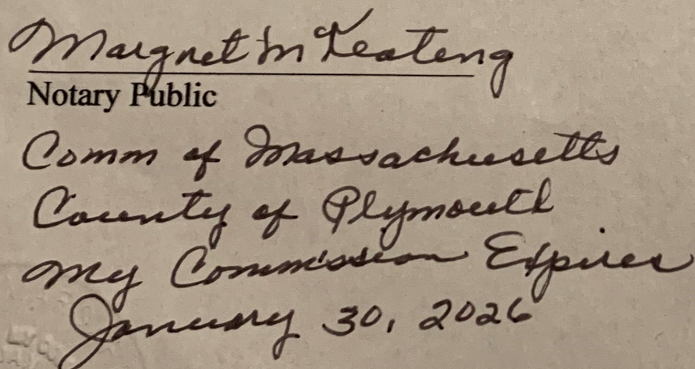 Margnet M Keateng
Notary Public
Comm of Massachusetts
County of Plymouth
My Commission Expires
January 30, 2026